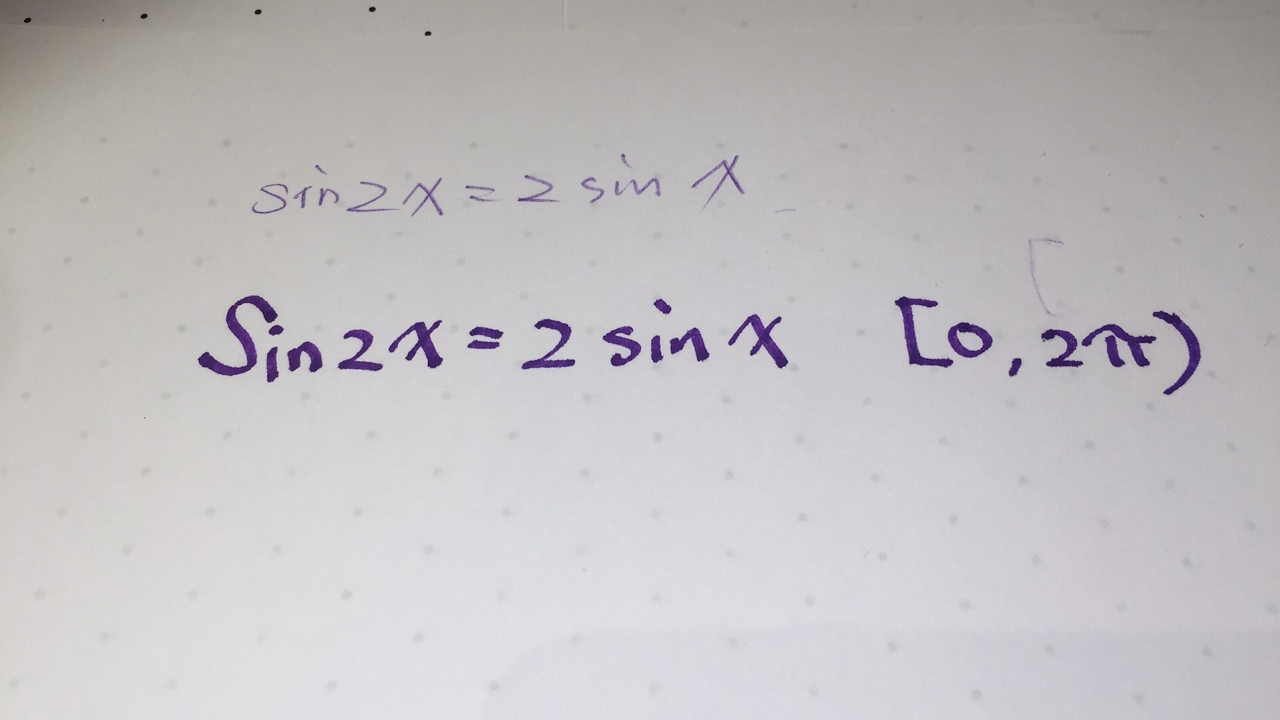 sin2x = 2 sin x
Sin2x = 2 sin x [0, 2π)